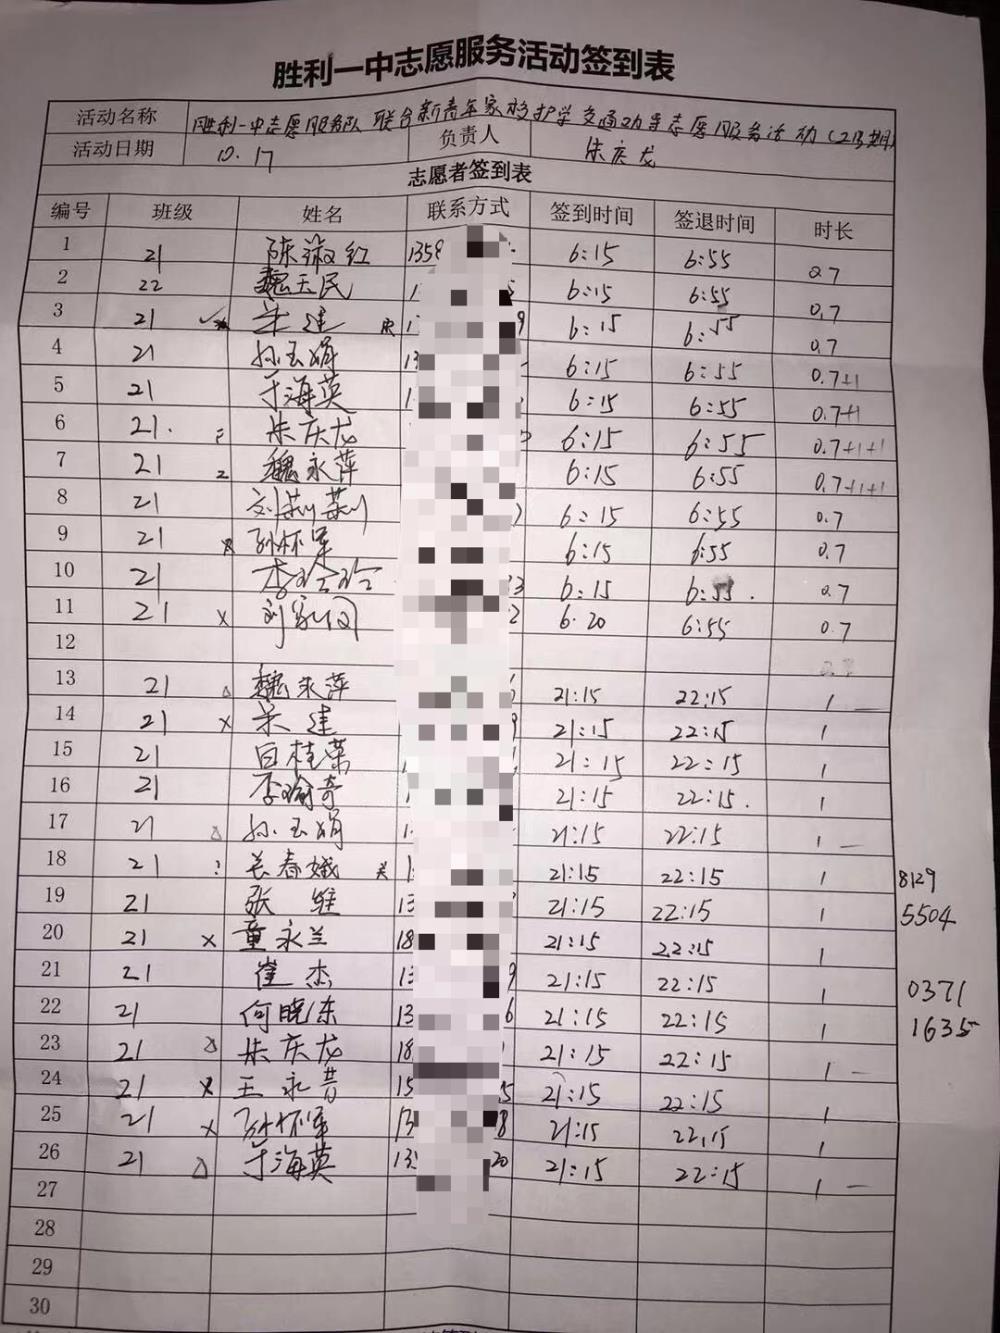 胜利一中志愿服务活动签到表
活动名称 胜利一中志愿服务队 联合新青年家校护学交通劝导志愿服务活动(213期)
活动日期 10.17 负责人 朱庆龙
志愿者签到表
编号 班级 姓名 联系方式 签到时间 签退时间 时长
1 21 陈淑红 1359 6:15 6:55 0.7
2 22 魏玉民 1 6:15 6:55 0.7
3 21 朱建 1 9 6:15 6:55 0.7
4 21 孙玉娟 13 6:15 6:55 0.7+1
5 21 于海英 1 6:15 6:55 0.7+1
6 21. 朱庆龙 6:15 6:55 0.7+1+1
7 21 魏永萍 6:15 6:55 0.7+1+1
8 21 刘莉莉 6:15 6:55 0.7
9 21 x 孙怀军 6:15 6:55 0.7
10 21 李玲玲 3 6:15 6:55. 0.7
11 21 x 刘家伺 2 6.20 6:55 0.7
12
13 21 △ 魏永萍 21:15 22:15 1 —
14 21 x 朱建 9 21:15 22:15 1
15 21 白桂荣 21:15 22:15 1
16 21 李瑜奇 21:15 22:15. 1
17 21 △ 孙玉娟 1 21:15 22:15 1 —
18 21 长春娥 21:15 22:15 1 8129
19 21 张维 13 21:15 22:15 1 5504
20 21 x 童永兰 18 21:15 22:15 1
21 21 崔杰 13 9 21:15 22:15 1 0371
22 21 何晓东 13 6 21:15 22:15 1 1635
23 21 △ 朱庆龙 18 21:15 22:15 1 —
24 21 x 王永昔 15 5 21:15 22:15 1
25 21 x 孙怀军 13 8 21:15 22,15 1
26 21 △ 于海英 13 20 21:15 22:15 1 —
27
28
29
30